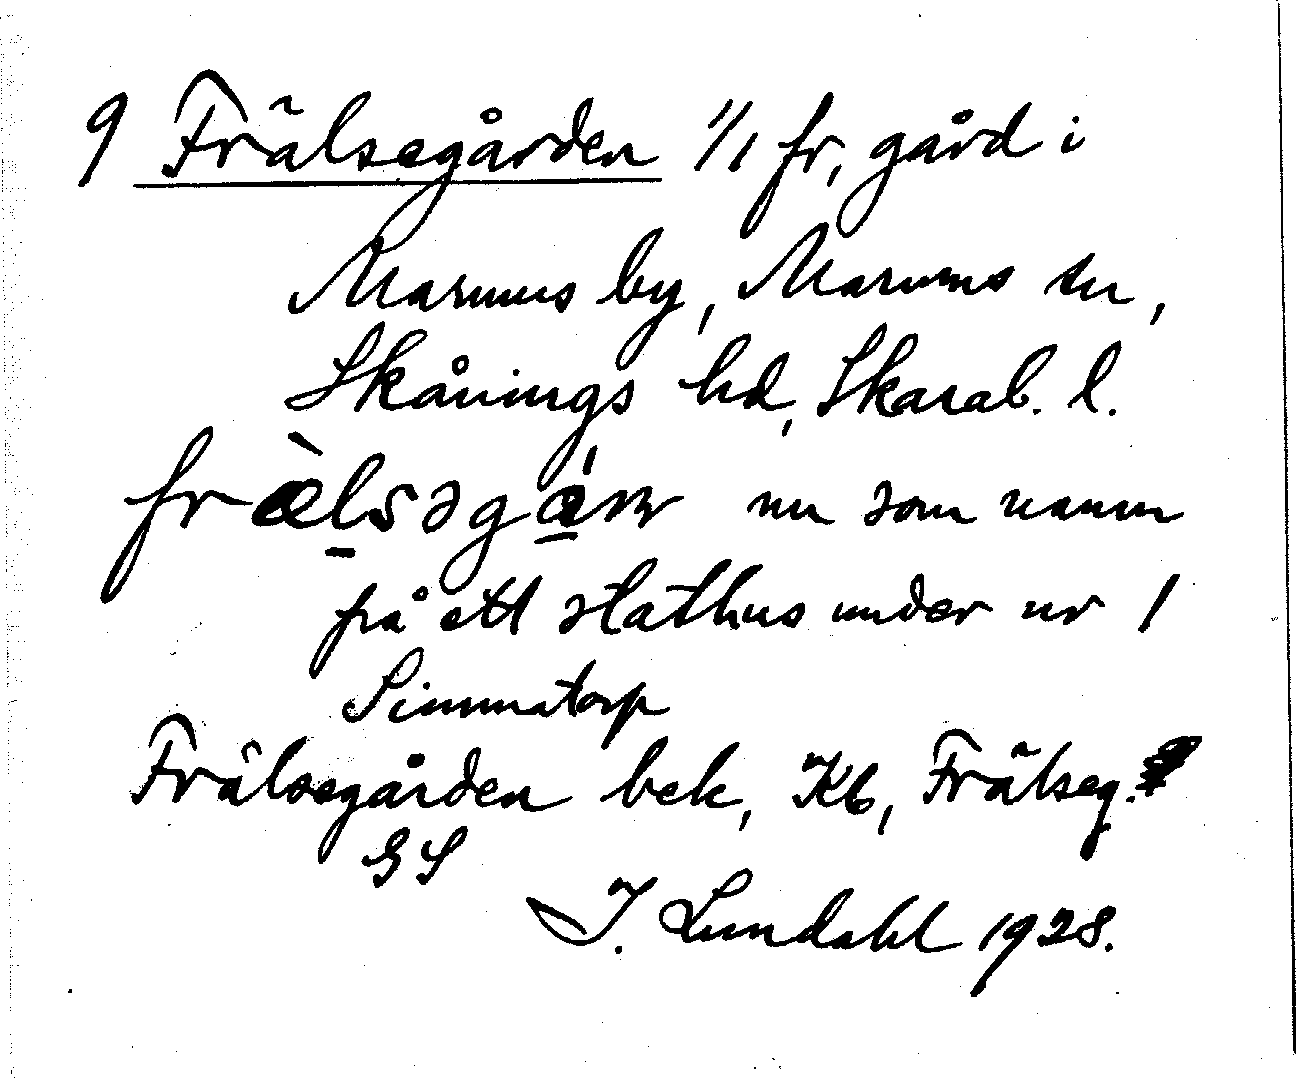 9 Frälsegården 1/1 fr, gård i
Marums by, Marums sn,
Skånings hd, Skarab. l.
fræ̀lsəgá̠ɳ nu som namn
på ett stathus under nr 1
Simmatorp
Frälsegården bek, Kb, Frälseg.
GS
I. Lundahl 1928.